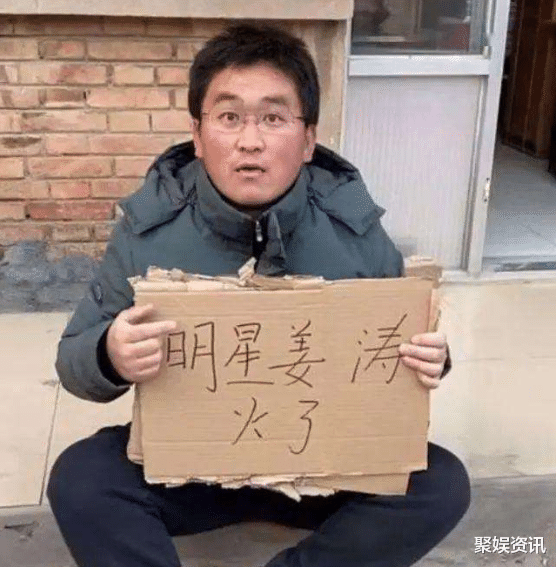 明星姜涛
火了
聚娱资讯